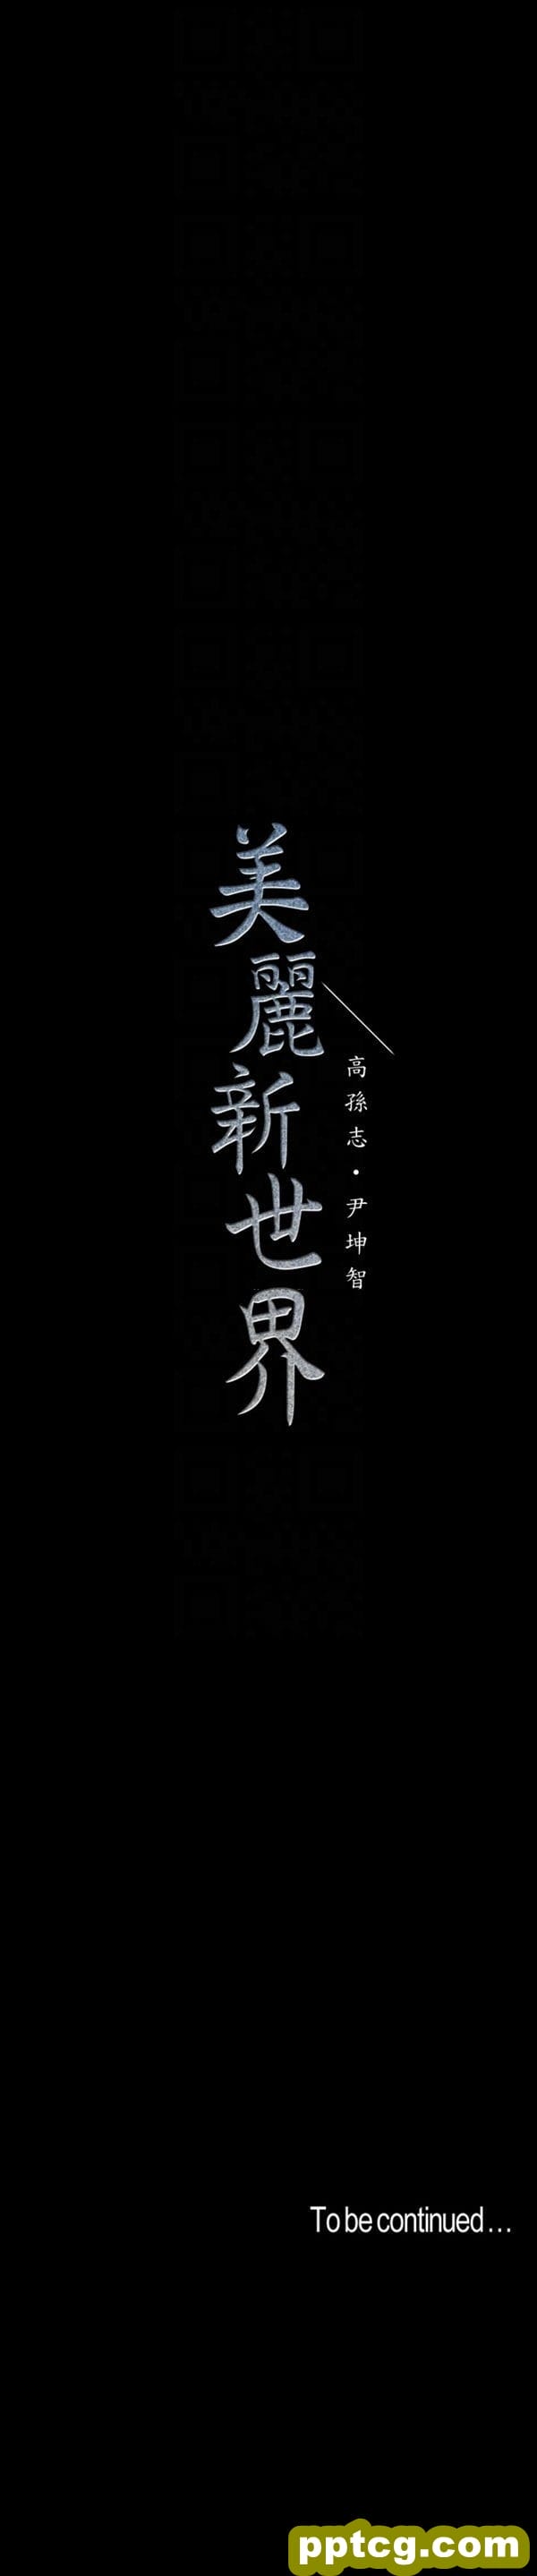 美麗新世界
高孫志·尹坤智
To be continued...
pptcg.com